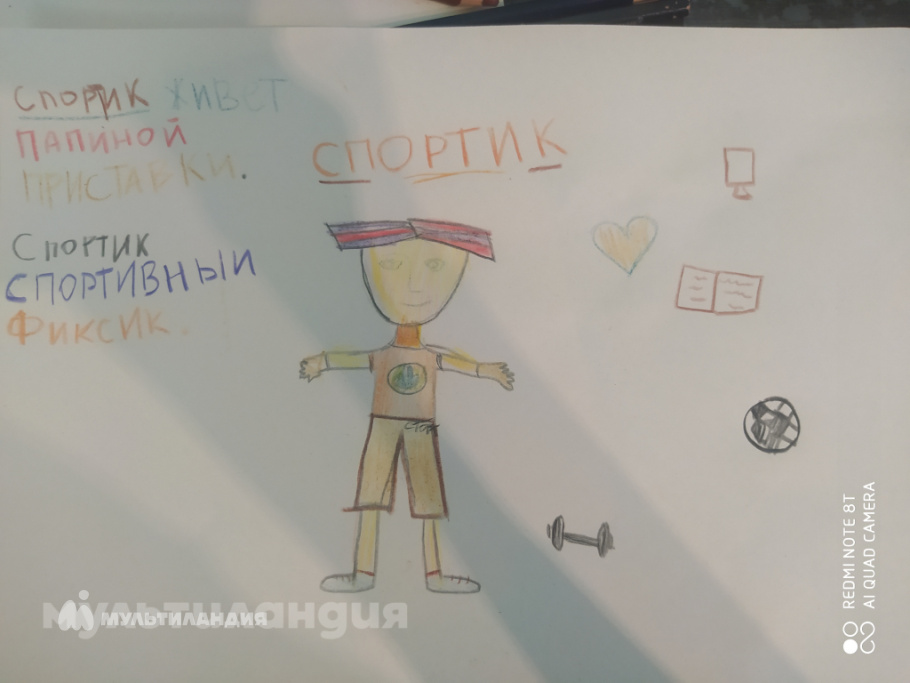 СПОРТИК ЖИВЕТ
ПАПИНОЙ
ПРИСТАВКИ.
СПОРТИК
СПОРТИК
СПОРТИВНЫЙ
ФИКСИК.
мультиландия
МУЛЬТИЛАНДИЯ
REDMI NOTE 8T
AI QUAD CAMERA